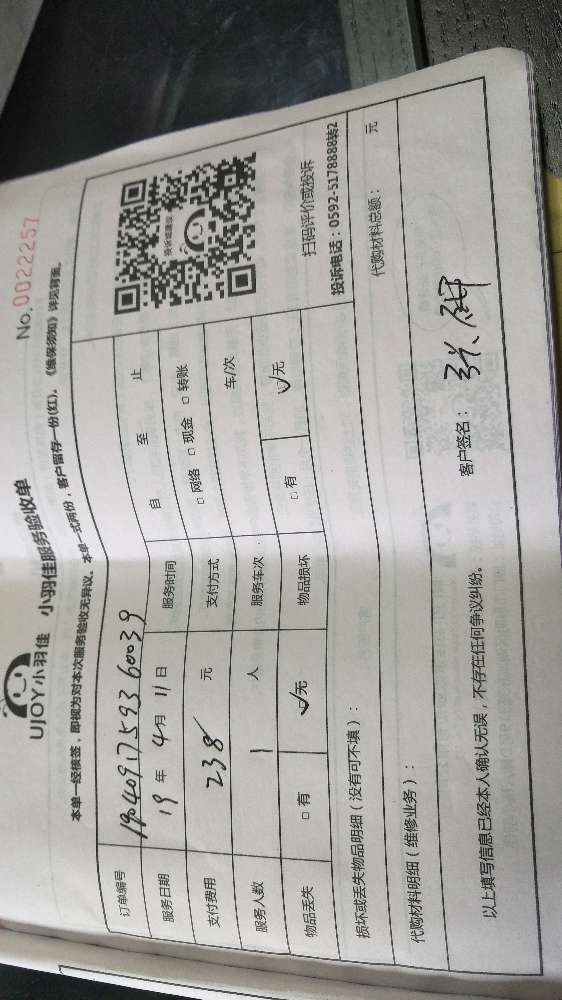 No.0022257
UJOY小羽佳 小羽佳服务验收单
本单一经核签，即视为对本次服务验收无异议。本单一式两份，客户留存一份(红)。《维保须知》详见背面。
订单编号 1904091759360039
服务日期 19年4月11日 服务时间 自 至 止
支付费用 238元 支付方式 □网络 □现金 □转账
服务人数 1人 服务车次 车/次
物品丢失 □有 ✓无 物品损坏 □有 ✓无
投诉或建议
扫码评价或投诉
投诉电话：0592-5178888转2
损坏或丢失物品明细（没有可不填）：
代购材料明细（维修业务）： 代购材料总额： 元
以上填写信息已经本人确认无误，不存在任何争议纠纷。
客户签名： 张